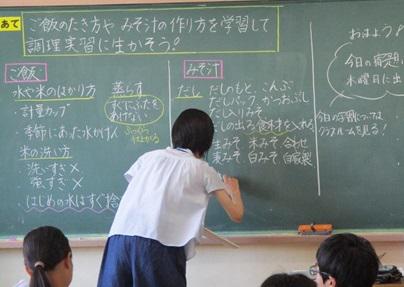 めあて
ご飯のたき方や みそ汁の作り方を学習して
調理実習に生かそう！
ご飯
水や米のはかり方
・計量カップ
・季節にあった水かげん
米の洗い方
・洗いすぎ×
・強すぎ×
・はじめの水はすぐ捨
蒸らす
すぐにふたを
あけない
ふっくら
仕上がる
みそ汁
だし
だしのもと、こんぶ
だしパック かつおぶし
だし入りみそ
だしの出る食材を入れる
生みそ 米みそ 合わせ
麦みそ 白みそ 自家製
おはよう！
今日の宿題
木曜日に出
今日の予習については
クラスルームを見る！